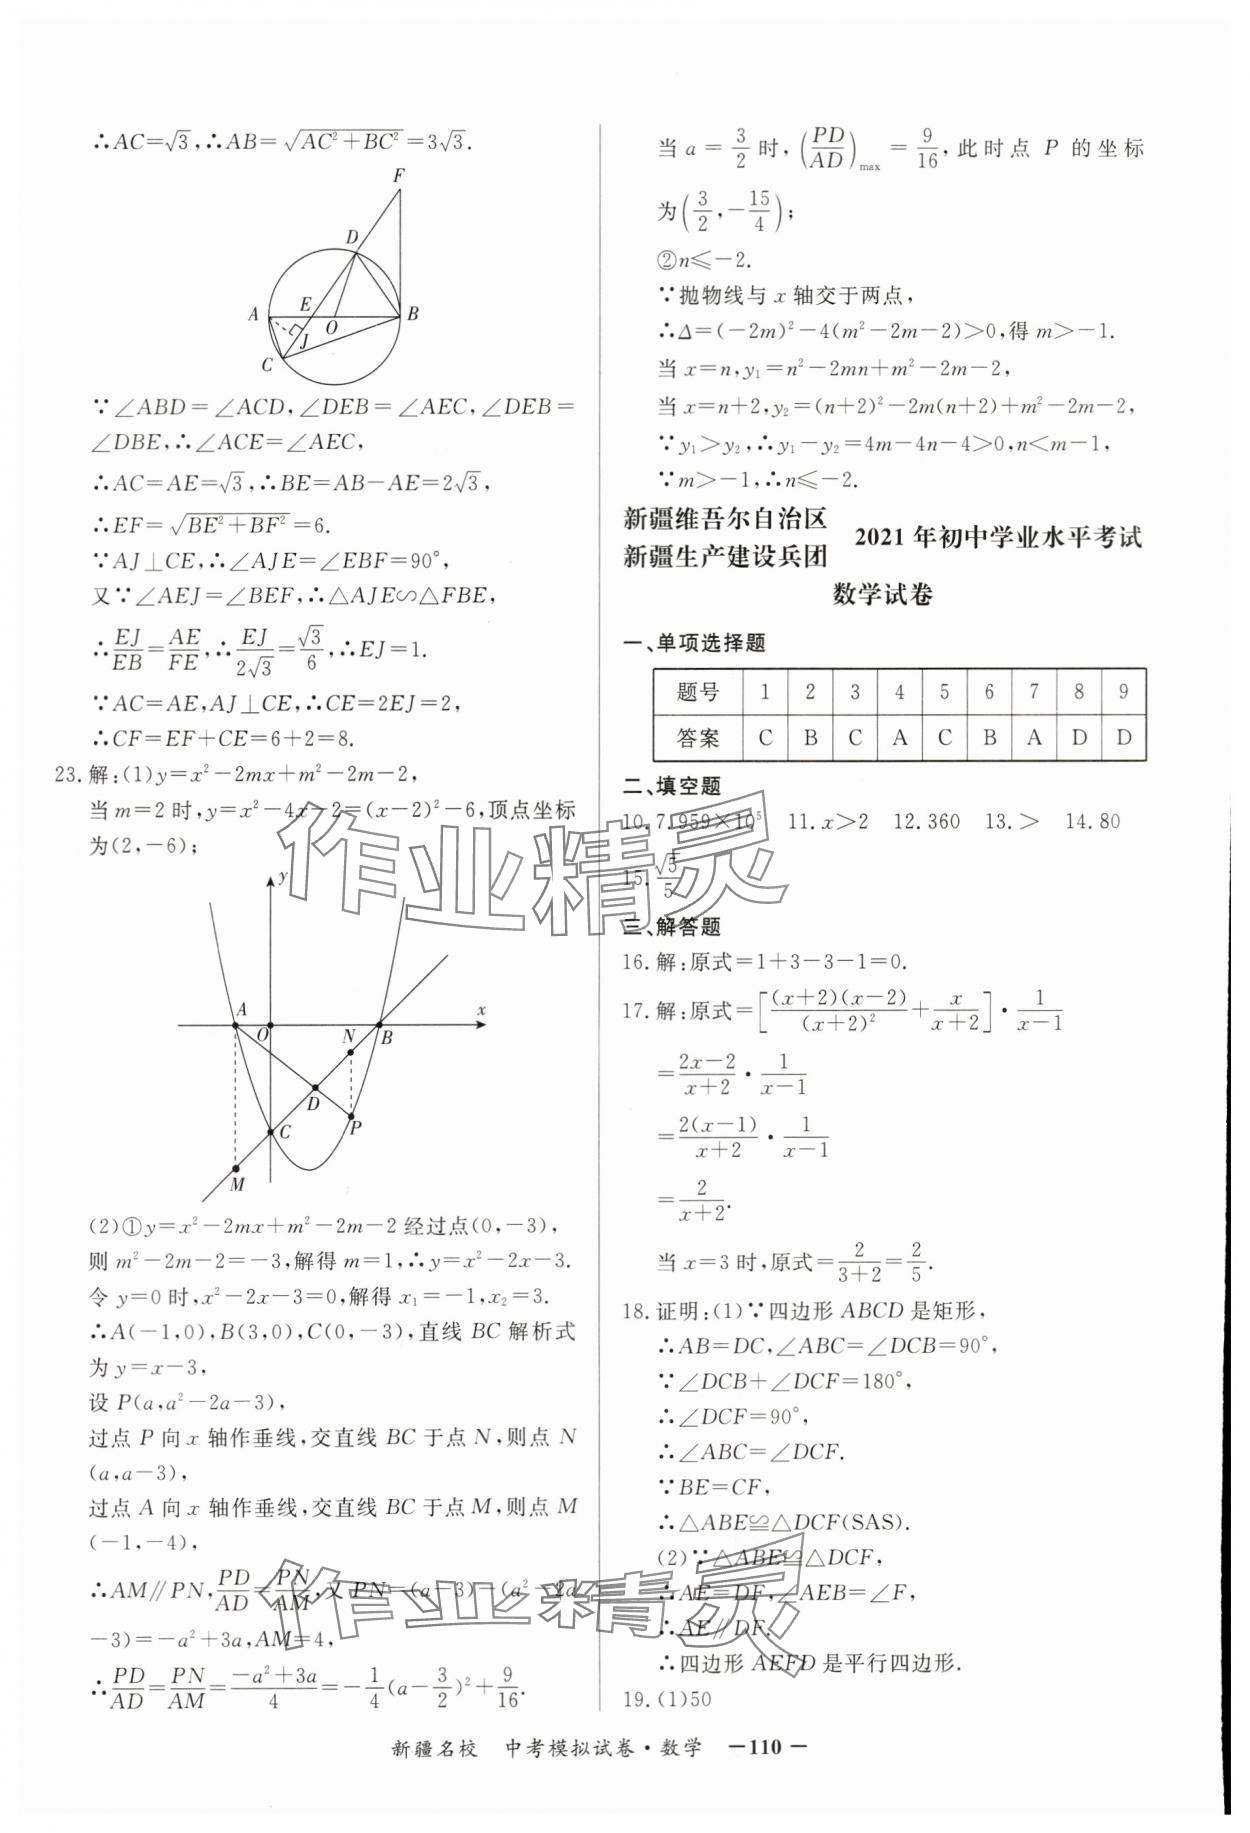 ∴AC=√3,∴AB=√(AC²+BC²)=3√3.
F
D
A
E
O
B
J
C
∵∠ABD=∠ACD,∠DEB=∠AEC,∠DEB=
∠DBE,∴∠ACE=∠AEC,
∴AC=AE=√3,∴BE=AB-AE=2√3,
∴EF=√(BE²+BF²)=6.
∵AJ⊥CE,∴∠AJE=∠EBF=90°,
又∵∠AEJ=∠BEF,∴△AJE∽△FBE,
∴EJ/EB=AE/FE,∴EJ/2√3=√3/6,∴EJ=1.
∵AC=AE,AJ⊥CE,∴CE=2EJ=2,
∴CF=EF+CE=6+2=8.
23.解:(1)y=x²-2mx+m²-2m-2,
当m=2时,y=x²-4x-2=(x-2)²-6,顶点坐标
为(2,-6);
y
A
O
N
B
x
D
P
C
M
(2)①y=x²-2mx+m²-2m-2经过点(0,-3),
则m²-2m-2=-3,解得m=1,∴y=x²-2x-3.
令y=0时,x²-2x-3=0,解得x₁=-1,x₂=3.
∴A(-1,0),B(3,0),C(0,-3),直线BC解析式
为y=x-3,
设P(a,a²-2a-3),
过点P向x轴作垂线,交直线BC于点N,则点N
(a,a-3),
过点A向x轴作垂线,交直线BC于点M,则点M
(-1,-4),
∴AM∥PN,PD/AD=PN/AM,又PN=(a-3)-(a²-2a
-3)=-a²+3a,AM=4,
∴PD/AD=PN/AM=(-a²+3a)/4=-1/4(a-3/2)²+9/16.
当a=3/2时,(PD/AD)max=9/16,此时点P的坐标
为(3/2,-15/4);
②n≤-2.
∵抛物线与x轴交于两点,
∴Δ=(-2m)²-4(m²-2m-2)>0,得m>-1.
当x=n,y₁=n²-2mn+m²-2m-2,
当x=n+2,y₂=(n+2)²-2m(n+2)+m²-2m-2,
∵y₁>y₂,∴y₁-y₂=4m-4n-4>0,n<m-1,
∵m>-1,∴n≤-2.
新疆维吾尔自治区
新疆生产建设兵团
2021年初中学业水平考试
数学试卷
一、单项选择题
题号 1 2 3 4 5 6 7 8 9
答案 C B C A C B A D D
二、填空题
10.7.1959×10⁵ 11.x>2 12.360 13.> 14.80
15.√5/5
三、解答题
16.解:原式=1+3-3-1=0.
17.解:原式=[(x+2)(x-2)/(x+2)²+x/(x+2)]·1/(x-1)
=(2x-2)/(x+2)·1/(x-1)
=2(x-1)/(x+2)·1/(x-1)
=2/(x+2).
当x=3时,原式=2/(3+2)=2/5.
18.证明:(1)∵四边形ABCD是矩形,
∴AB=DC,∠ABC=∠DCB=90°,
∵∠DCB+∠DCF=180°,
∴∠DCF=90°,
∴∠ABC=∠DCF.
∵BE=CF,
∴△ABE≌△DCF(SAS).
(2)∵△ABE≌△DCF,
∴AE=DF,∠AEB=∠F,
∴AE∥DF.
∴四边形AEFD是平行四边形.
19.(1)50
新疆名校 中考模拟试卷·数学 -110-
作业精灵
作业精灵